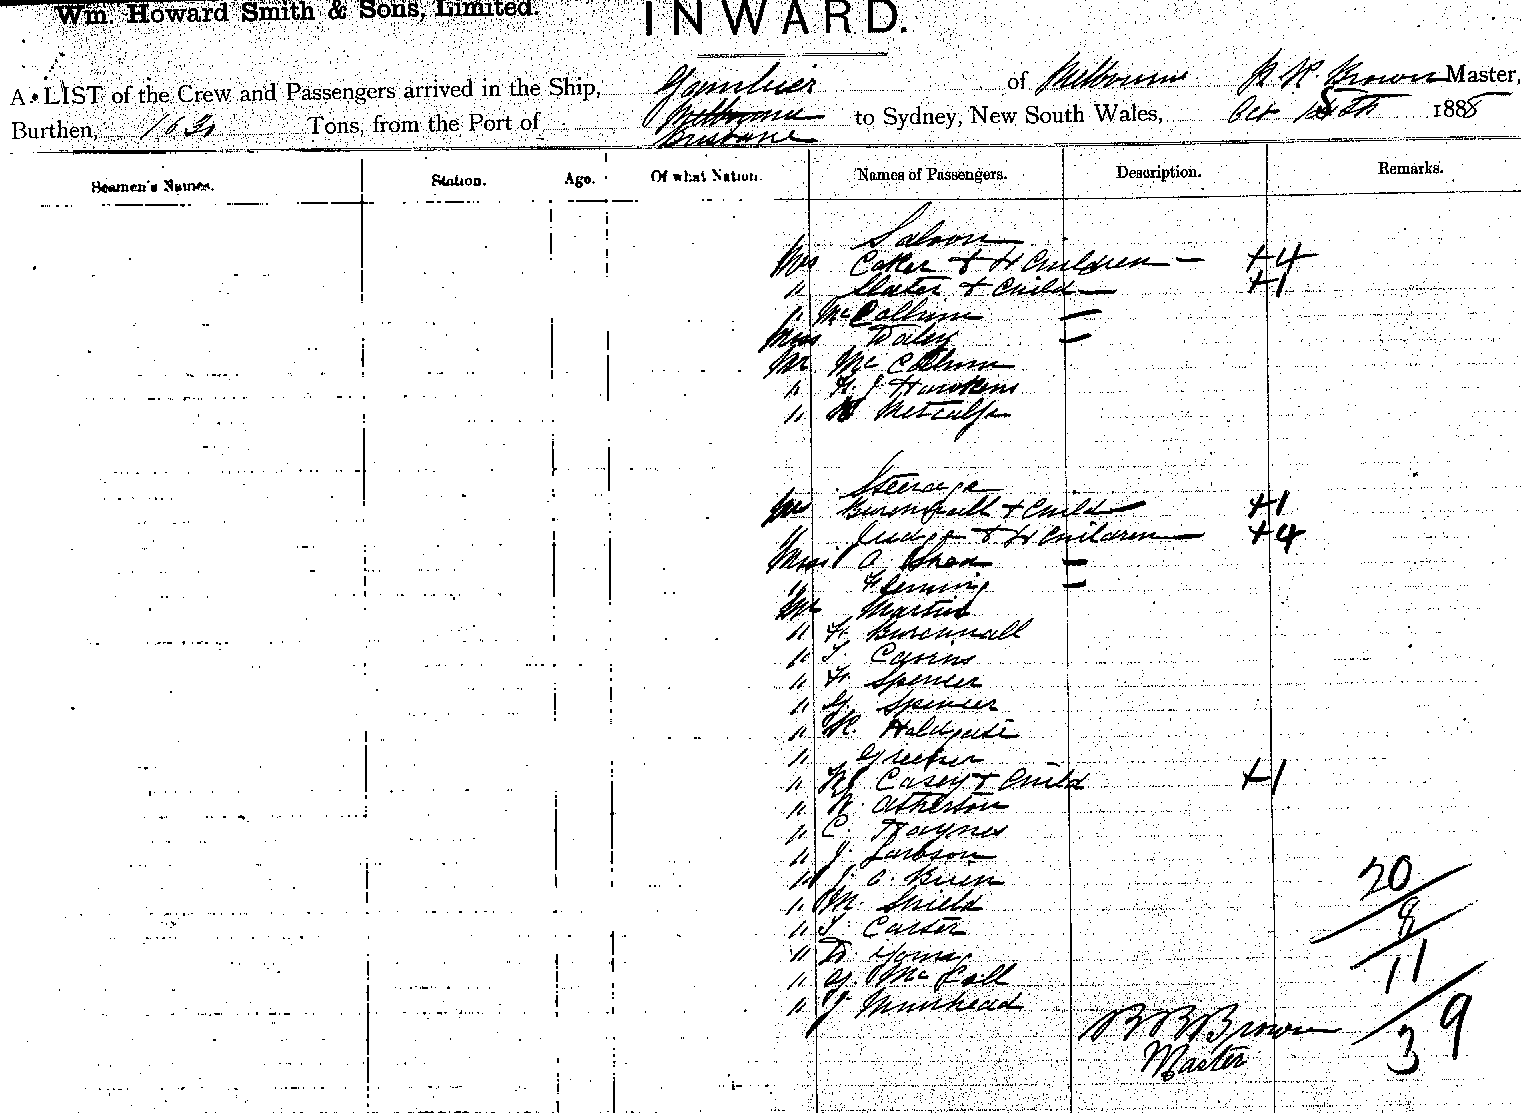 Wm. Howard Smith & Sons, Limited.
INWARD.
A LIST of the Crew and Passengers arrived in the Ship, of Melbourne Brown Master,
Burthen, Tons, from the Port of Melbourne Brisbane to Sydney, New South Wales, Oct 1888
Seamen's Names. Station. Age. Of what Nation. Names of Passengers. Description. Remarks.
Saloon
Mrs Coker + 4 Children — +4
" Slater + Child — +1
" McCallum —
Miss Daley —
Mr McCallum
" J Hawkins
" Metcalfe
Steerage
Mrs Burchnall + Child — +1
" Judge + 4 Children — +4
Miss O Shea —
" Fleming —
Mr Martin
" Burchnall
" T. Cairns
" Spencer
" G. Spencer
" Holdgate
"
" Casey + Child +1
" Atherton
" C. Haynes
" J.
" J. O.
" M. Shield
" T. Carter
" D. Young
" G. McCall
" J. Muirhead
20
8
11
39
Brown
Master